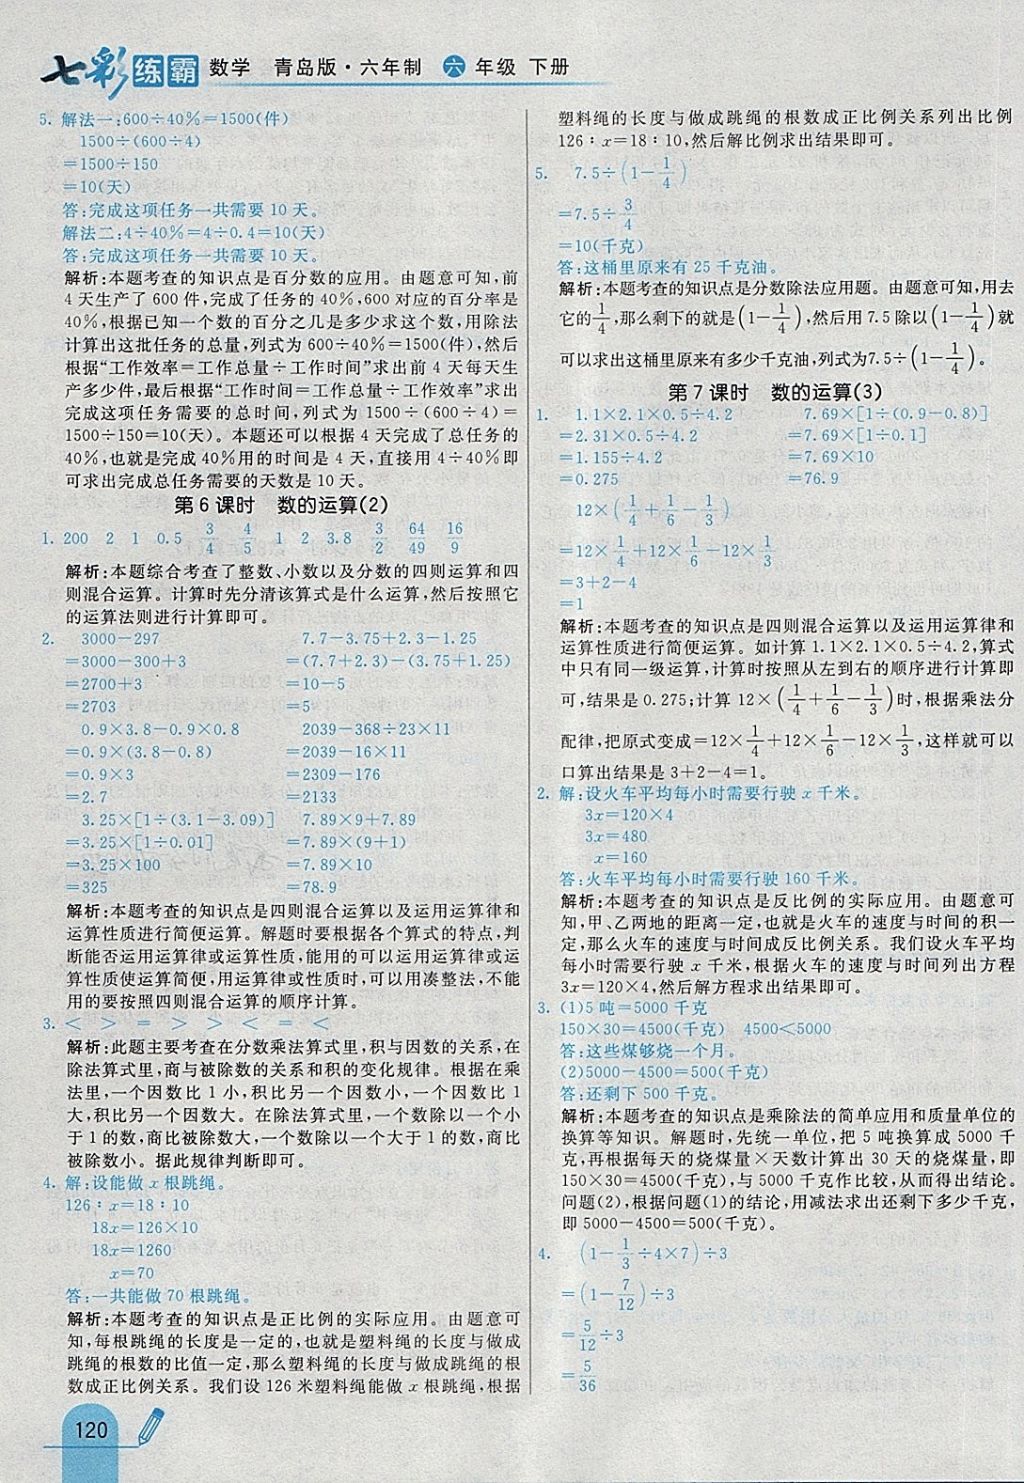 七彩练霸 数学 青岛版·六年制 六 年级 下册
5. 解法一:600÷40%=1500(件)
1500÷(600÷4)
=1500÷150
=10(天)
答:完成这项任务一共需要 10 天。
解法二:4÷40%=4÷0.4=10(天)
答:完成这项任务一共需要 10 天。
解析:本题考查的知识点是百分数的应用。由题意可知,前
4 天生产了 600 件,完成了任务的 40%,600 对应的百分率是
40%,根据已知一个数的百分之几是多少求这个数,用除法
计算出这批任务的总量,列式为 600÷40%=1500(件),然后
根据“工作效率=工作总量÷工作时间”求出前 4 天每天生
产多少件,最后根据“工作时间=工作总量÷工作效率”求出
完成这项任务需要的总时间,列式为 1500÷(600÷4)=
1500÷150=10(天)。本题还可以根据 4 天完成了总任务的
40%,也就是完成 40%用的时间是 4 天,直接用 4÷40%即
可求出完成总任务需要的天数是 10 天。
第 6 课时 数的运算(2)
1. 200 2 1 0.5 3/4 4/5 1 2 3.8 3/2 64/49 16/9
解析:本题综合考查了整数、小数以及分数的四则运算和四
则混合运算。计算时先分清该算式是什么运算,然后按照它
的运算法则进行计算即可。
2. 3000-297 7.7-3.75+2.3-1.25
=3000-300+3 =(7.7+2.3)-(3.75+1.25)
=2700+3 =10-5
=2703 =5
0.9×3.8-0.9×0.8 2039-368÷23×11
=0.9×(3.8-0.8) =2039-16×11
=0.9×3 =2309-176
=2.7 =2133
3.25×[1÷(3.1-3.09)] 7.89×9+7.89
=3.25×[1÷0.01] =7.89×(9+1)
=3.25×100 =7.89×10
=325 =78.9
解析:本题考查的知识点是四则混合运算以及运用运算律和
运算性质进行简便运算。解题时要根据各个算式的特点,判
断能否运用运算律或运算性质,能用的可以运用运算律或运
算性质使运算简便,用运算律或性质时,可以用凑整法,不能
用的要按照四则混合运算的顺序计算。
3. < > = > > < = <
解析:此题主要考查在分数乘法算式里,积与因数的关系,在
除法算式里,商与被除数的关系和积的变化规律。根据在乘
法里,一个因数比 1 小,积比另一个因数小,一个因数比 1
大,积比另一个因数大。在除法算式里,一个数除以一个小
于 1 的数,商比被除数大,一个数除以一个大于 1 的数,商比
被除数小。据此规律判断即可。
4. 解:设能做 x 根跳绳。
126∶x=18∶10
18x=126×10
18x=1260
x=70
答:一共能做 70 根跳绳。
解析:本题考查的知识点是正比例的实际应用。由题意可
知,每根跳绳的长度是一定的,也就是塑料绳的长度与做成
跳绳的根数的比值一定,那么塑料绳的长度与做成跳绳的根
数成正比例关系。我们设 126 米塑料绳能做 x 根跳绳,根据
塑料绳的长度与做成跳绳的根数成正比例关系列出比例
126∶x=18∶10,然后解比例求出结果即可。
5. 7.5÷(1-1/4)
=7.5÷3/4
=10(千克)
答:这桶里原来有 25 千克油。
解析:本题考查的知识点是分数除法应用题。由题意可知,用去
它的1/4,那么剩下的就是(1-1/4),然后用 7.5 除以(1-1/4)就
可以求出这桶里原来有多少千克油,列式为7.5÷(1-1/4)。
第 7 课时 数的运算(3)
1. 1.1×2.1×0.5÷4.2 7.69×[1÷(0.9-0.8)]
=2.31×0.5÷4.2 =7.69×[1÷0.1]
=1.155÷4.2 =7.69×10
=0.275 =76.9
12×(1/4+1/6-1/3)
=12×1/4+12×1/6-12×1/3
=3+2-4
=1
解析:本题考查的知识点是四则混合运算以及运用运算律和
运算性质进行简便运算。如计算 1.1×2.1×0.5÷4.2,算式
中只有同一级运算,计算时按照从左到右的顺序进行计算即
可,结果是 0.275;计算 12×(1/4+1/6-1/3)时,根据乘法分
配律,把原式变成=12×1/4+12×1/6-12×1/3,这样就可以
口算出结果是 3+2-4=1。
2. 解:设火车平均每小时需要行驶 x 千米。
3x=120×4
3x=480
x=160
答:火车平均每小时需要行驶 160 千米。
解析:本题考查的知识点是反比例的实际应用。由题意可
知,甲、乙两地的距离一定,也就是火车的速度与时间的积一
定,那么火车的速度与时间成反比例关系。我们设火车平均
每小时需要行驶 x 千米,根据火车的速度与时间列出方程
3x=120×4,然后解方程求出结果即可。
3. (1)5 吨=5000 千克
150×30=4500(千克) 4500<5000
答:这些煤够烧一个月。
(2)5000-4500=500(千克)
答:还剩下 500 千克。
解析:本题考查的知识点是乘除法的简单应用和质量单位的
换算等知识。解题时,先统一单位,把 5 吨换算成 5000 千
克,再根据每天的烧煤量×天数计算出 30 天的烧煤量,即
150×30=4500(千克),与 5000 千克作比较,从而得出结论。
问题(2),根据问题(1)的结论,用减法求出还剩下多少千克,
即 5000-4500=500(千克)。
4. (1-1/3÷4×7)÷3
=(1-7/12)÷3
=5/12÷3
=5/36
120